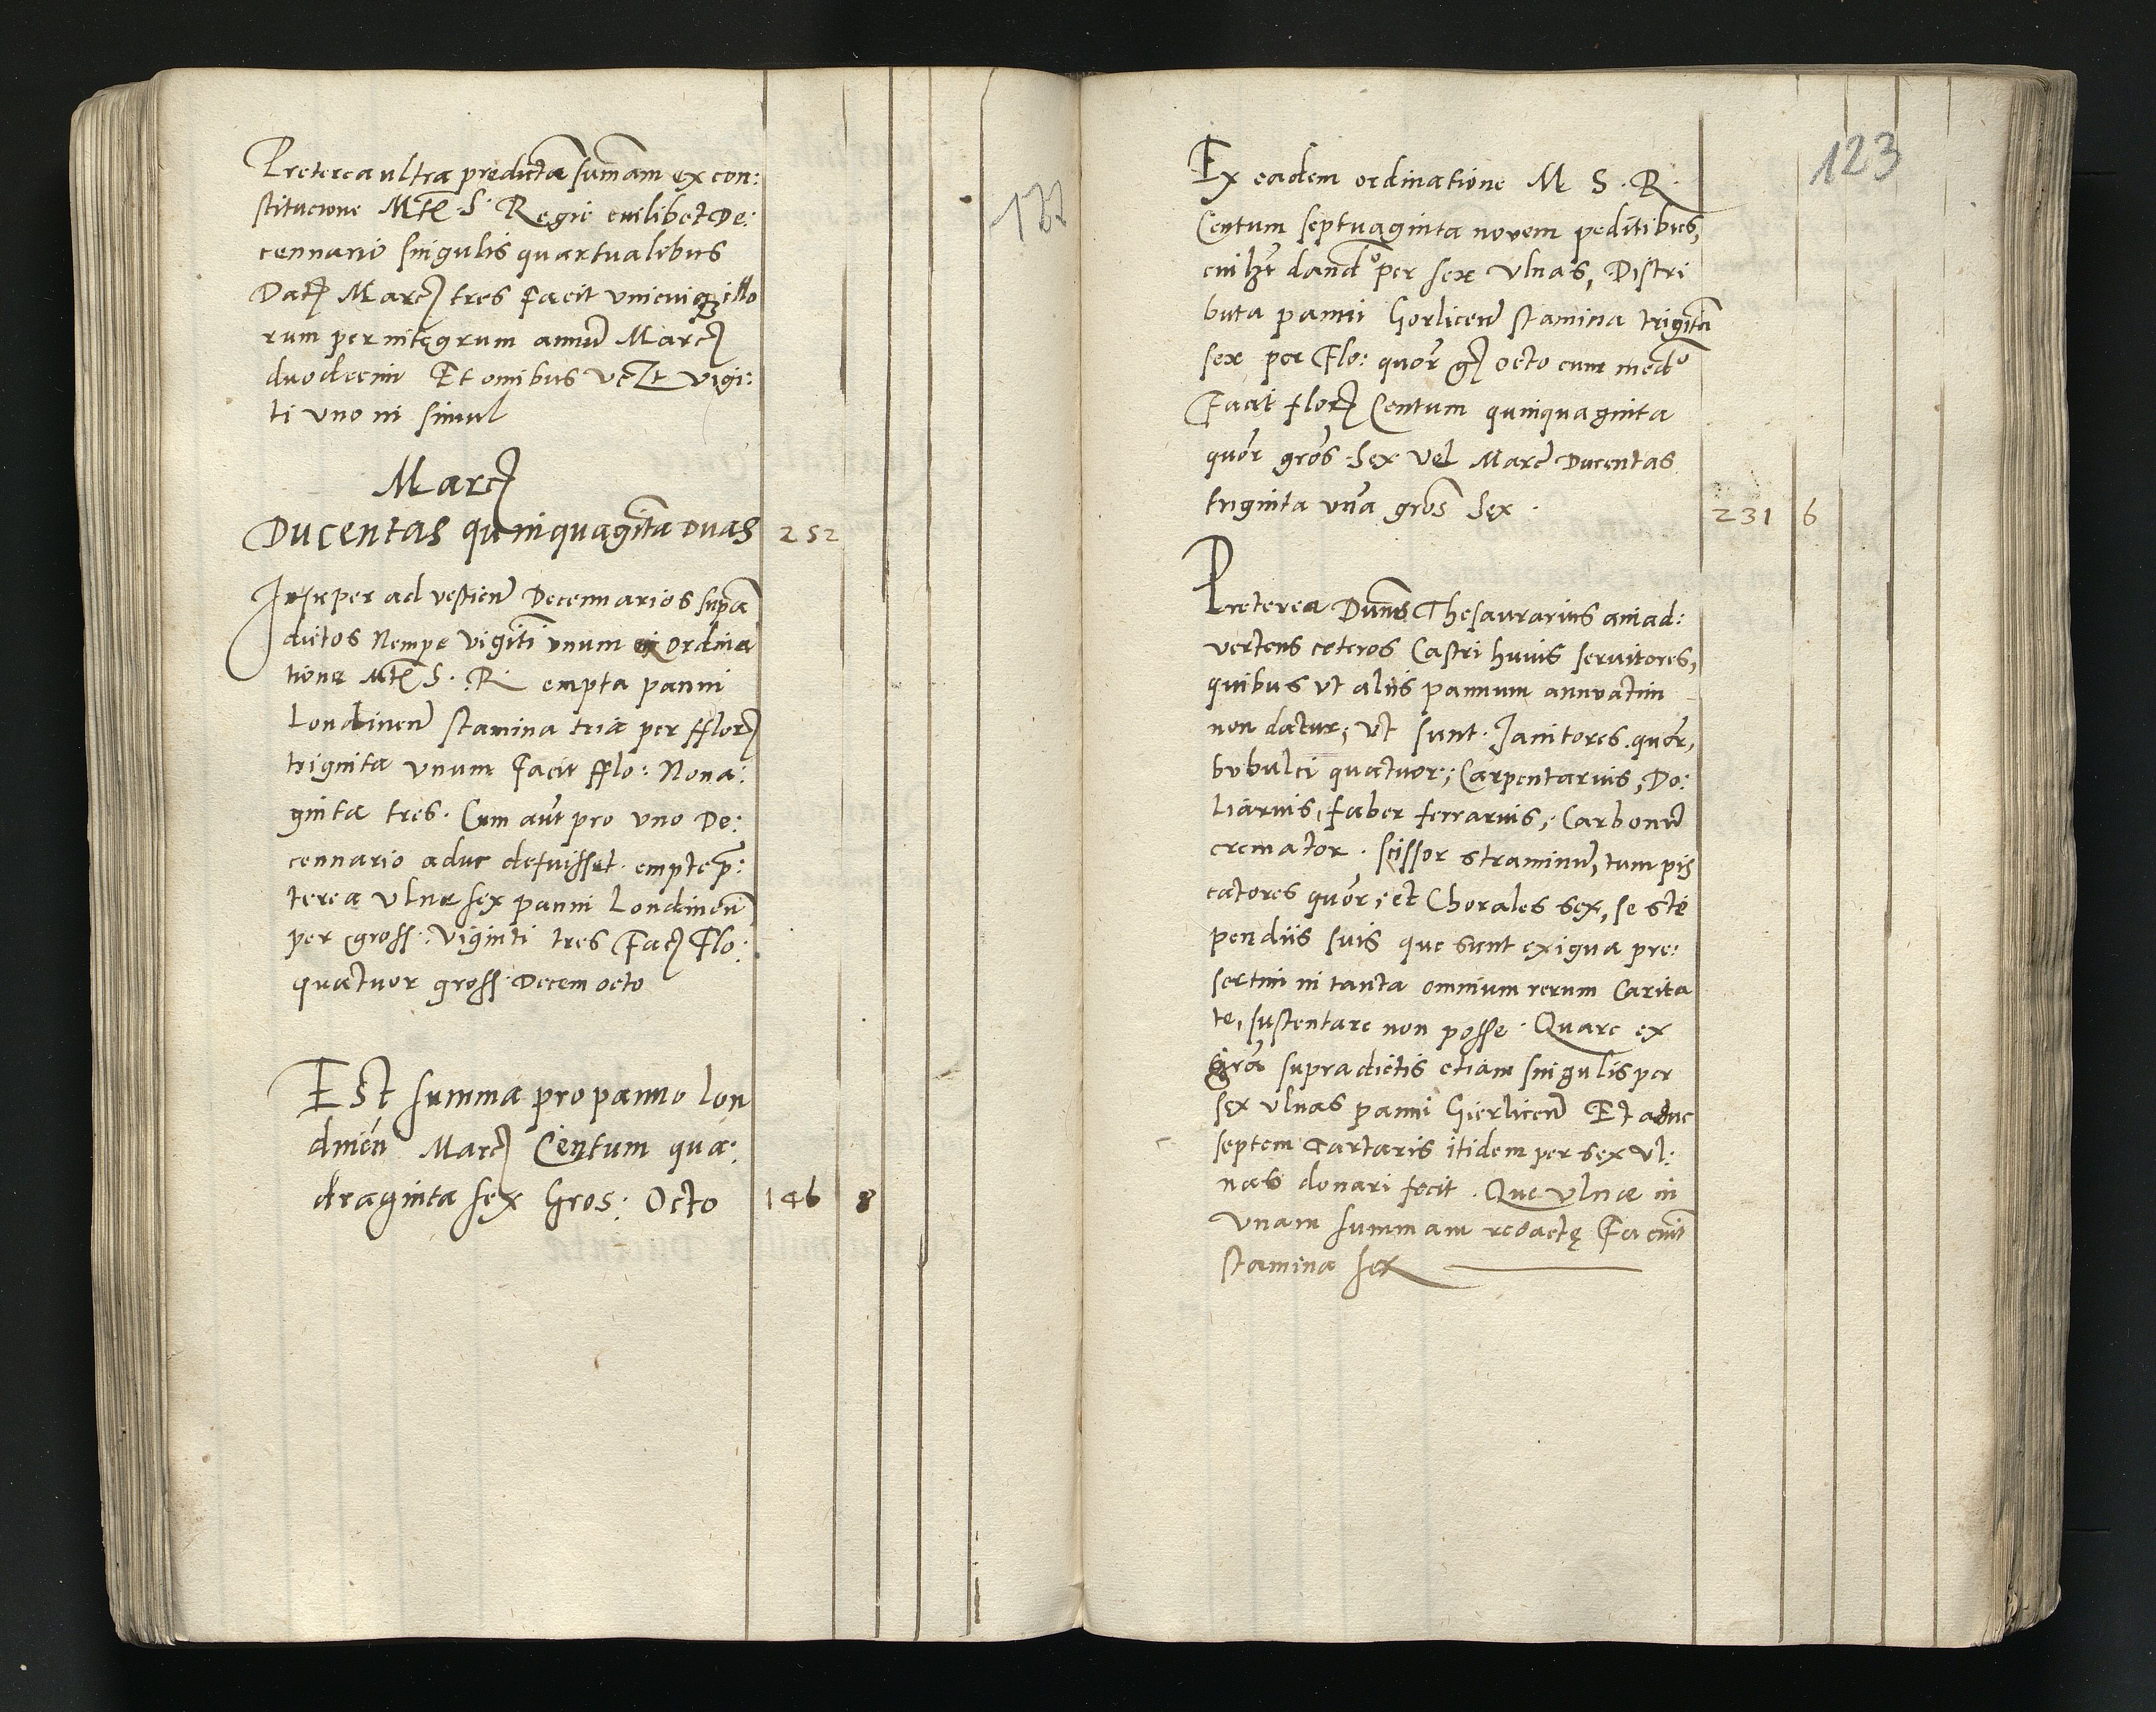 Preterea ultra predictã sum̃am ex con:
stitucione Mtis S. Regie cuilibet De:
cennario singulis quartualibus
Datę Marcę tres facit unicuiqz illo
rum per integrum annũ Marcę
duodecim Et omĩbus vigi:
ti uno in simul
Marcę
Ducentas quinquagĩta duas 252
Insuper ad vestienđ Decennarios supra
dictos Nempe vigiti unum ex ordina
tione Mtis S. R. empta panni
Londinenš stamina tria per fflorę
triginta unum facit fflo: Nona:
ginta tres. Cum aut̃ pro uno De:
cennario aduc defuisset. empte p̃:
terea ulnæ sex panni Londinenš
per gross: viginti tres Facę Flo:
quatuor gross: Decem octo
Est summa pro panno lon
dineñ Marcę Centum qua:
draginta sex Gros: Octo 146 8
122
123
Ex eadem ordinatione M S. R.
Centum septuaginta novem peditibus,
cuilibet dando per sex ulnas, Distri
buta panni Gorlicenš stamina trigĩta
sex per Flo: quõr gę octo cum medo
Facit florę Centum quinquaginta
quõr grõs. Sex vel Marcę Ducentas
triginta unã grõs Sex. 231 6
Preterea Dũns Thesaurarius aniad:
vertens ceteros Castri huius servitores,
quibus ut aliis pannum annuatim
non datur; ut sunt. Janitores. quõr,
bubulci quatuor; Carpentarius, Do:
liarius, faber ferrarius, Carbonũ
cremator. scissor straminũ, tum pis
catores quõr; et Chorales sex, se sti
pendiis suis que sunt exigua pre:
sertim in tanta omnium rerum Carita
te, sustentare non posse. Quare ex
grã supradictis etiam singulis per
sex ulnas panni Gierlicenš Et aduc
septem Tartaris itidem per sex ul:
nas donari fecit. Que ulnæ in
unam summam redactę Faciũt
stamina sex